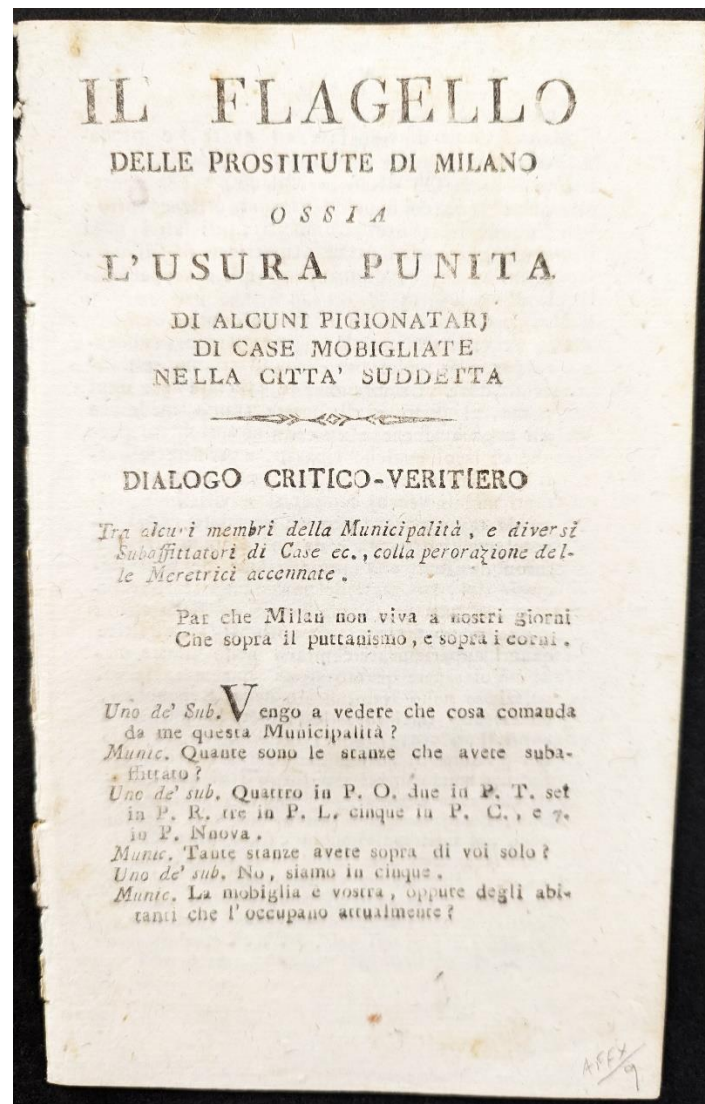 IL FLAGELLO
DELLE PROSTITUTE DI MILANO
OSSIA
L'USURA PUNITA
DI ALCUNI PIGIONATARJ
DI CASE MOBIGLIATE
NELLA CITTA' SUDDETTA
DIALOGO CRITICO-VERITIERO
Tra alcuni membri della Municipalità, e diversi
Subaffittatori di Case ec., colla perorazione del-
le Meretrici accennate.
Par che Milan non viva a nostri giorni
Che sopra il puttanismo, e sopra i corni.
Uno de' Sub. Vengo a vedere che cosa comanda
da me questa Municipalità?
Munic. Quante sono le stanze che avete suba-
ffittato?
Uno de' sub. Quattro in P. O. due in P. T. sei
in P. R. tre in P. L. cinque in P. C., e 7.
in P. Nuova.
Munic. Tante stanze avete sopra di voi solo?
Uno de' sub. No, siamo in cinque.
Munic. La mobiglia è vostra, oppure degli abi-
tanti che l'occupano attualmente?
AFFX/9